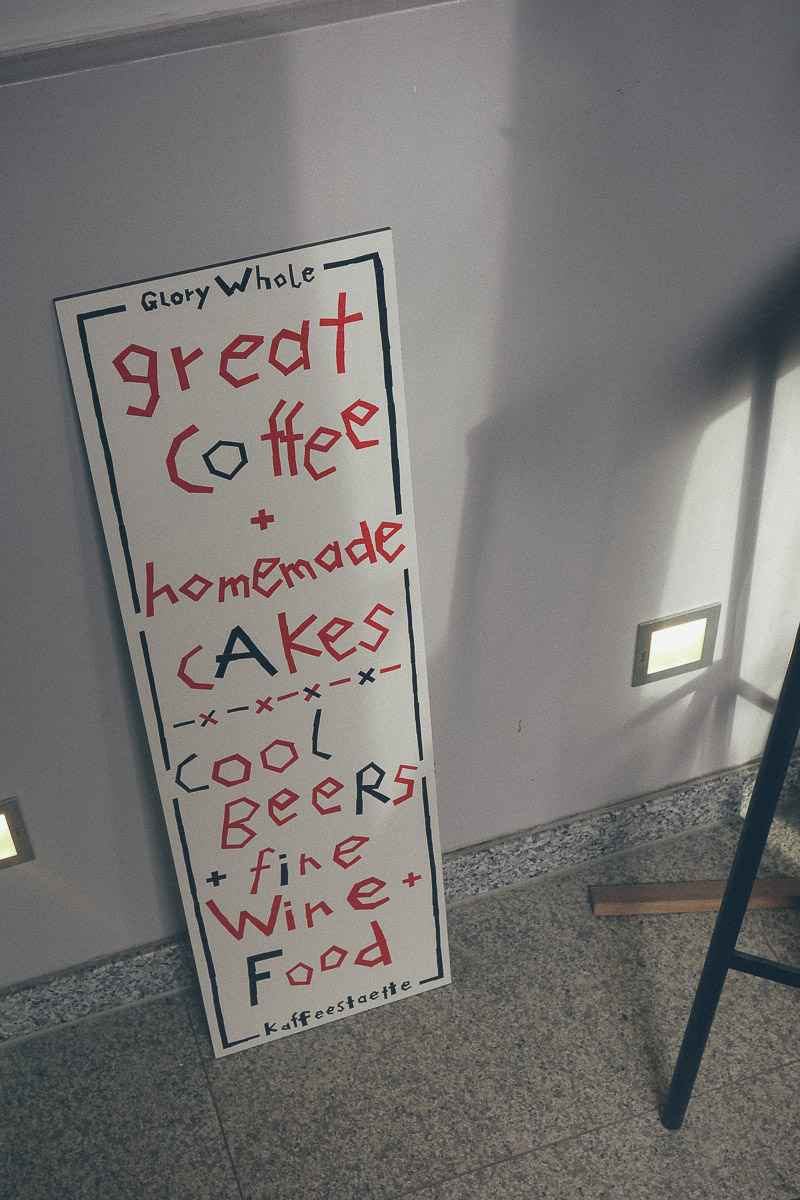 Glory Whole
great
Coffee
+
homemade
cAkes
-x-x-x-x-
cool
BeeRs
+ fine
Wine +
Food
Kaffeestaette